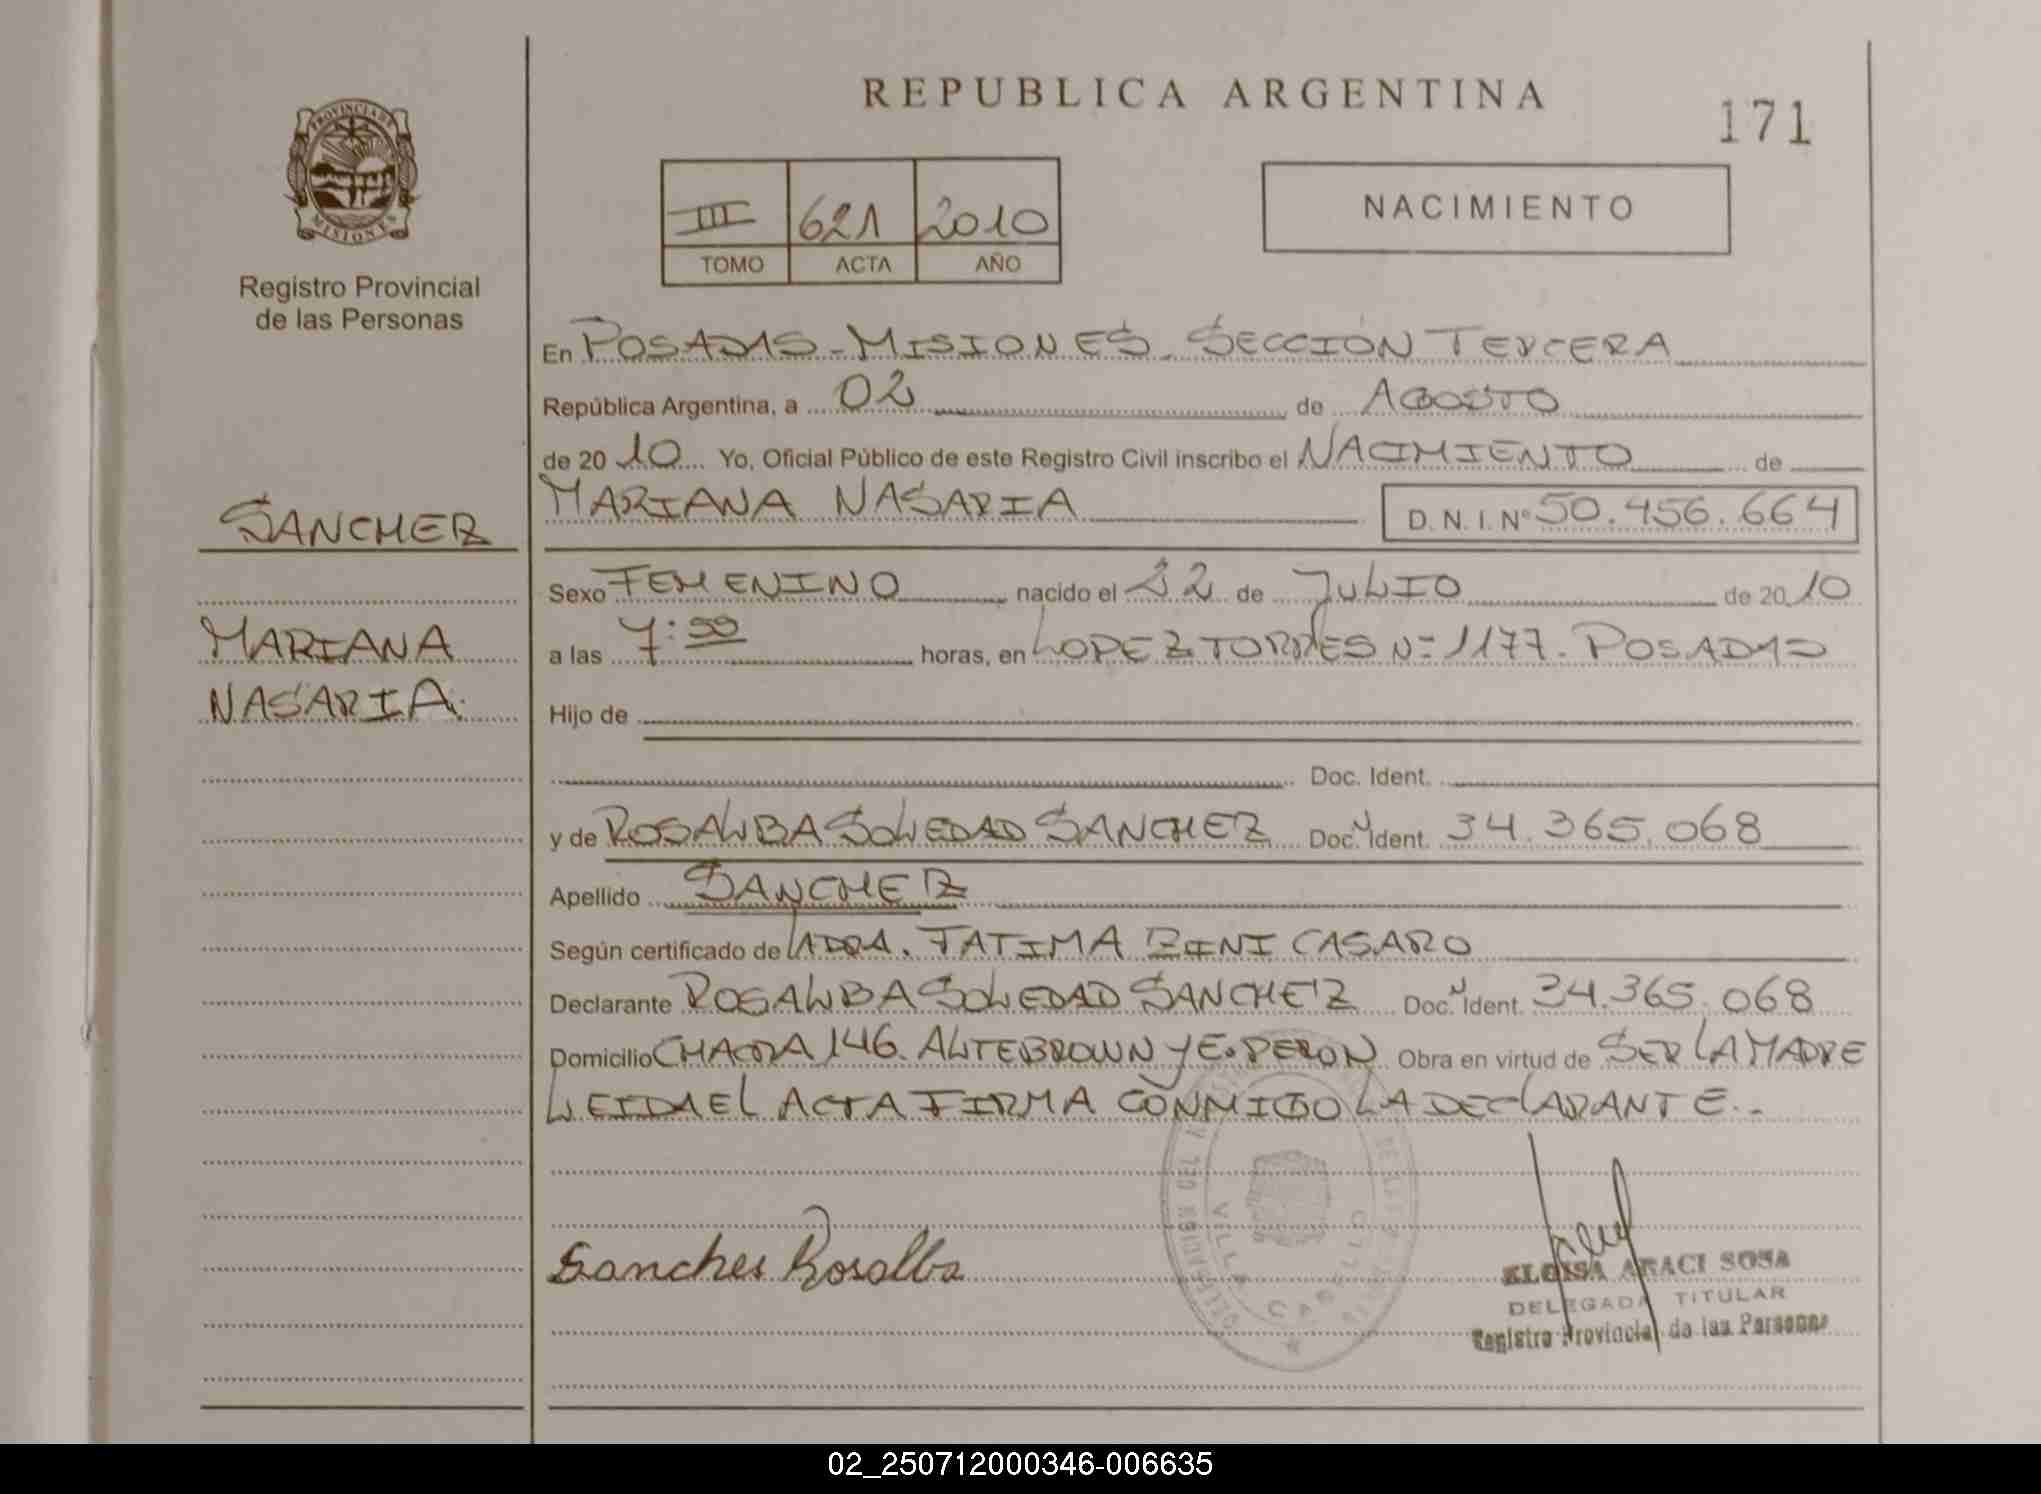 REPUBLICA ARGENTINA
171
PROVINCIA DE
MISIONES
Registro Provincial
de las Personas
III 621 2010
TOMO ACTA AÑO
NACIMIENTO
En POSADAS - MISIONES - SECCIÓN TERCERA
República Argentina, a 02 de AGOSTO
de 2010 Yo, Oficial Público de este Registro Civil inscribo el NACIMIENTO de
MARIANA NASARIA D.N.I. Nº 50.456.664
SANCHEZ
MARIANA
NASARIA.
Sexo FEMENINO nacido el 22 de JULIO de 2010
a las 7:55 horas, en LOPEZ TORRES Nº 1177. POSADAS
Hijo de
Doc. Ident.
y de ROSALBA SOLEDAD SANCHEZ Doc. Ident. 34.365.068
Apellido SANCHEZ
Según certificado de LA DRA. FATIMA ZINI CASARO
Declarante ROSALBA SOLEDAD SANCHEZ Doc. Ident. 34.365.068
Domicilio CHACRA 146. ALTE BROWN Y E. PERON Obra en virtud de SER LA MADRE
LEIDA EL ACTA FIRMA CONMIGO LA DECLARANTE.-
VILLA CABELLO
Sanches Rosalba
ELOISA ARACI SOSA
DELEGADA TITULAR
Registro Provincial de las Personas
02_250712000346-006635